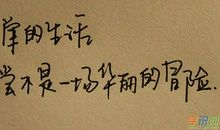 单的生活
尝不是一场华丽的冒险.